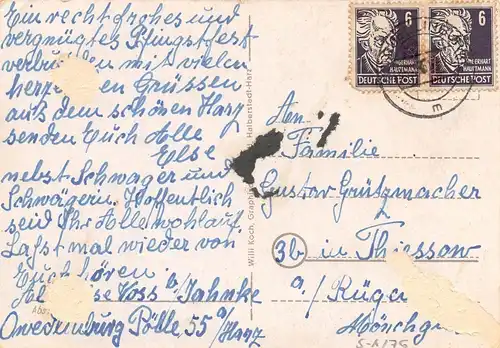 Ein recht frohes und
vergnügtes Pfingstfest
verbunden mit vielen
herz en Grüssen
aus dem schönen Harz
senden Euch Alle
Else
nebst Schwager und
Schwägerin. Hoffentlich
seid Ihr Alle wohlauf.
Laßt mal wieder von
Euch hören.
Voss b/ Jahnke
Pölle 55 a/Harz
6 6
GERHART HAUPTMANN
DEUTSCHE POST
GERHART HAUPTMANN
DEUTSCHE POST
An
Familie
Gustav Grützmacher
3b in Thiessow
a/ Rüge
Mönchg
Willi Koch, Graphi Halberstedt-Harz
m
S-A175